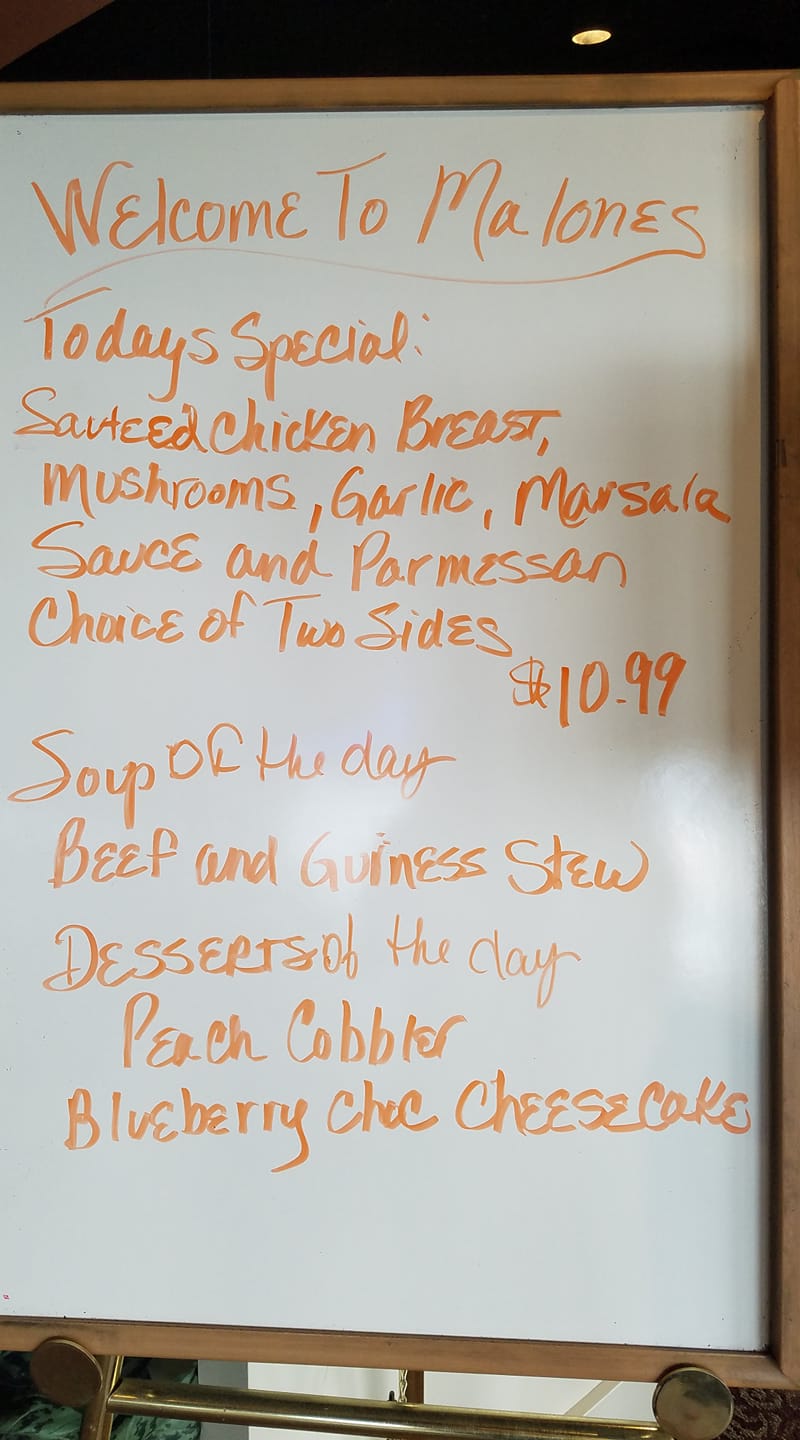 Welcome To Malones
Todays Special:
Sauteed Chicken Breast,
Mushrooms, Garlic, Marsala
Sauce and Parmessan
Choice of Two Sides
$10.99
Soup of the day
Beef and Guiness Stew
Desserts of the day
Peach Cobbler
Blueberry Choc Cheesecake